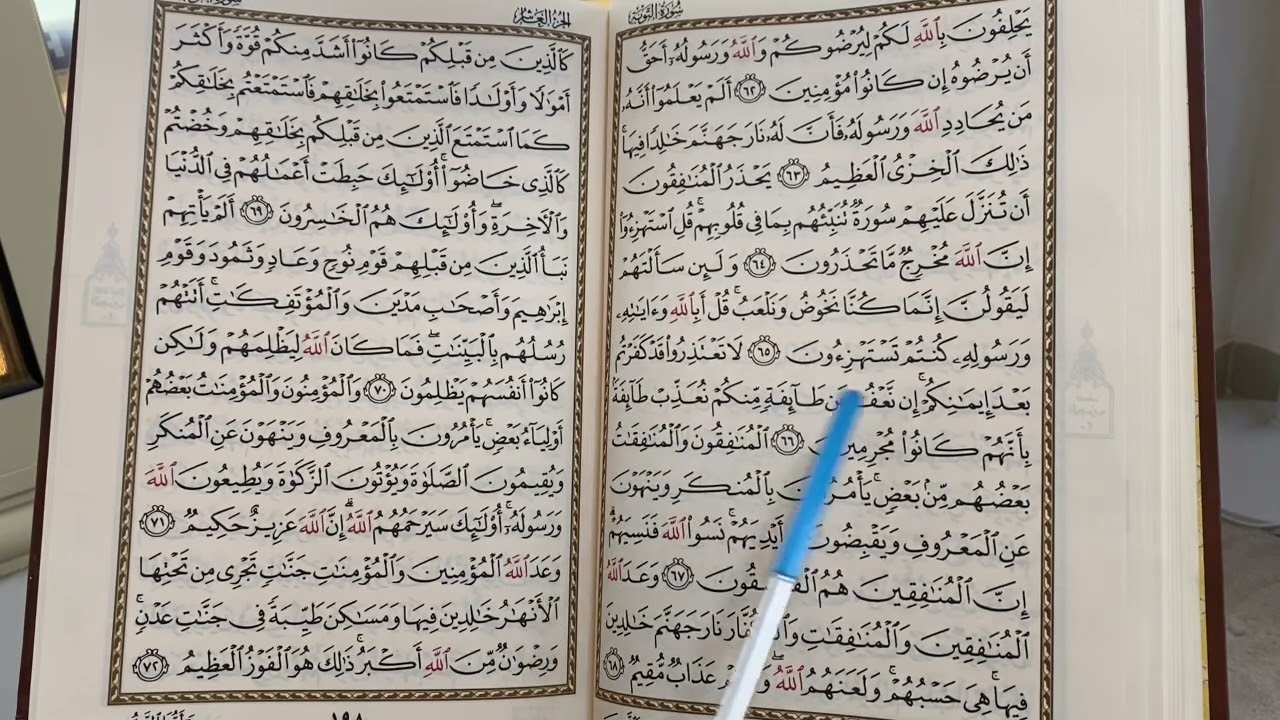 سُورَةُ التَّوْبَةِ
يَحْلِفُونَ بِٱللَّهِ لَكُمْ لِيُرْضُوكُمْ وَٱللَّهُ وَرَسُولُهُۥٓ أَحَقُّ
أَن يُرْضُوهُ إِن كَانُوا۟ مُؤْمِنِينَ ٦٢ أَلَمْ يَعْلَمُوٓا۟ أَنَّهُۥ
مَن يُحَادِدِ ٱللَّهَ وَرَسُولَهُۥ فَأَنَّ لَهُۥ نَارَ جَهَنَّمَ خَٰلِدًا فِيهَا ۚ
ذَٰلِكَ ٱلْخِزْىُ ٱلْعَظِيمُ ٦٣ يَحْذَرُ ٱلْمُنَٰفِقُونَ
أَن تُنَزَّلَ عَلَيْهِمْ سُورَةٌ تُنَبِّئُهُم بِمَا فِى قُلُوبِهِمْ ۚ قُلِ ٱسْتَهْزِءُوٓا۟
إِنَّ ٱللَّهَ مُخْرِجٌ مَّا تَحْذَرُونَ ٦٤ وَلَئِن سَأَلْتَهُمْ
لَيَقُولُنَّ إِنَّمَا كُنَّا نَخُوضُ وَنَلْعَبُ ۚ قُلْ أَبِٱللَّهِ وَءَايَٰتِهِۦ
وَرَسُولِهِۦ كُنتُمْ تَسْتَهْزِءُونَ ٦٥ لَا تَعْتَذِرُوا۟ قَدْ كَفَرْتُم
بَعْدَ إِيمَٰنِكُمْ ۚ إِن نَّعْفُ عَن طَآئِفَةٍ مِّنكُمْ نُعَذِّبْ طَآئِفَةًۢ
بِأَنَّهُمْ كَانُوا۟ مُجْرِمِينَ ٦٦ ٱلْمُنَٰفِقُونَ وَٱلْمُنَٰفِقَٰتُ
بَعْضُهُم مِّنۢ بَعْضٍ ۚ يَأْمُرُونَ بِٱلْمُنكَرِ وَيَنْهَوْنَ
عَنِ ٱلْمَعْرُوفِ وَيَقْبِضُونَ أَيْدِيَهُمْ ۚ نَسُوا۟ ٱللَّهَ فَنَسِيَهُمْ ۗ
إِنَّ ٱلْمُنَٰفِقِينَ هُمُ ٱلْفَٰسِقُونَ ٦٧ وَعَدَ ٱللَّهُ
ٱلْمُنَٰفِقِينَ وَٱلْمُنَٰفِقَٰتِ وَٱلْكُفَّارَ نَارَ جَهَنَّمَ خَٰلِدِينَ
فِيهَا ۚ هِىَ حَسْبُهُمْ ۚ وَلَعَنَهُمُ ٱللَّهُ ۖ وَلَهُمْ عَذَابٌ مُّقِيمٌ ٦٨
الجُزْءُ العَاشِرُ
كَٱلَّذِينَ مِن قَبْلِكُمْ كَانُوٓا۟ أَشَدَّ مِنكُمْ قُوَّةً وَأَكْثَرَ
أَمْوَٰلًا وَأَوْلَٰدًا فَٱسْتَمْتَعُوا۟ بِخَلَٰقِهِمْ فَٱسْتَمْتَعْتُم بِخَلَٰقِكُمْ
كَمَا ٱسْتَمْتَعَ ٱلَّذِينَ مِن قَبْلِكُم بِخَلَٰقِهِمْ وَخُضْتُمْ
كَٱلَّذِى خَاضُوٓا۟ ۚ أُو۟لَٰٓئِكَ حَبِطَتْ أَعْمَٰلُهُمْ فِى ٱلدُّنْيَا
وَٱلْءَاخِرَةِ ۖ وَأُو۟لَٰٓئِكَ هُمُ ٱلْخَٰسِرُونَ ٦٩ أَلَمْ يَأْتِهِمْ
نَبَأُ ٱلَّذِينَ مِن قَبْلِهِمْ قَوْمِ نُوحٍ وَعَادٍ وَثَمُودَ وَقَوْمِ
إِبْرَٰهِيمَ وَأَصْحَٰبِ مَدْيَنَ وَٱلْمُؤْتَفِكَٰتِ ۚ أَتَتْهُمْ
رُسُلُهُم بِٱلْبَيِّنَٰتِ ۖ فَمَا كَانَ ٱللَّهُ لِيَظْلِمَهُمْ وَلَٰكِن
كَانُوٓا۟ أَنفُسَهُمْ يَظْلِمُونَ ٧٠ وَٱلْمُؤْمِنُونَ وَٱلْمُؤْمِنَٰتُ بَعْضُهُمْ
أَوْلِيَآءُ بَعْضٍ ۚ يَأْمُرُونَ بِٱلْمَعْرُوفِ وَيَنْهَوْنَ عَنِ ٱلْمُنكَرِ
وَيُقِيمُونَ ٱلصَّلَوٰةَ وَيُؤْتُونَ ٱلزَّكَوٰةَ وَيُطِيعُونَ ٱللَّهَ
وَرَسُولَهُۥٓ ۚ أُو۟لَٰٓئِكَ سَيَرْحَمُهُمُ ٱللَّهُ ۗ إِنَّ ٱللَّهَ عَزِيزٌ حَكِيمٌ ٧١
وَعَدَ ٱللَّهُ ٱلْمُؤْمِنِينَ وَٱلْمُؤْمِنَٰتِ جَنَّٰتٍ تَجْرِى مِن تَحْتِهَا
ٱلْأَنْهَٰرُ خَٰلِدِينَ فِيهَا وَمَسَٰكِنَ طَيِّبَةً فِى جَنَّٰتِ عَدْنٍ ۚ
وَرِضْوَٰنٌ مِّنَ ٱللَّهِ أَكْبَرُ ۚ ذَٰلِكَ هُوَ ٱلْفَوْزُ ٱلْعَظِيمُ ٧٢
١٩٨